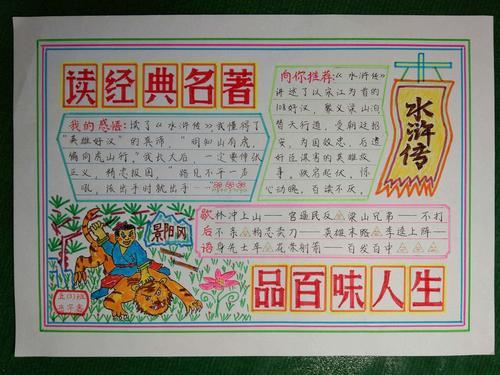 读经典名著
向你推荐:《水浒传》
讲述了以宋江为首的
108好汉,聚义梁山泊
替天行道,受朝廷招
安,为国效忠,后遭
奸臣谋害的英雄故
事。跌宕起伏,惊
心动魄,百读不厌。
水浒传
我的感悟:读了《水浒传》,我懂得了
"英雄好汉"的真谛,"明知山有虎,
偏向虎山行。"我长大后,一定要伸张
正义,精忠报国,"路见不平一声
吼,该出手时就出手…"
景阳冈
歇后语
林冲上山——官逼民反 梁山兄弟——不打
不亲 杨志卖刀——英雄末路 李逵上阵—
身先士卒 花荣射箭——百发百中
五(3)班
品百味人生